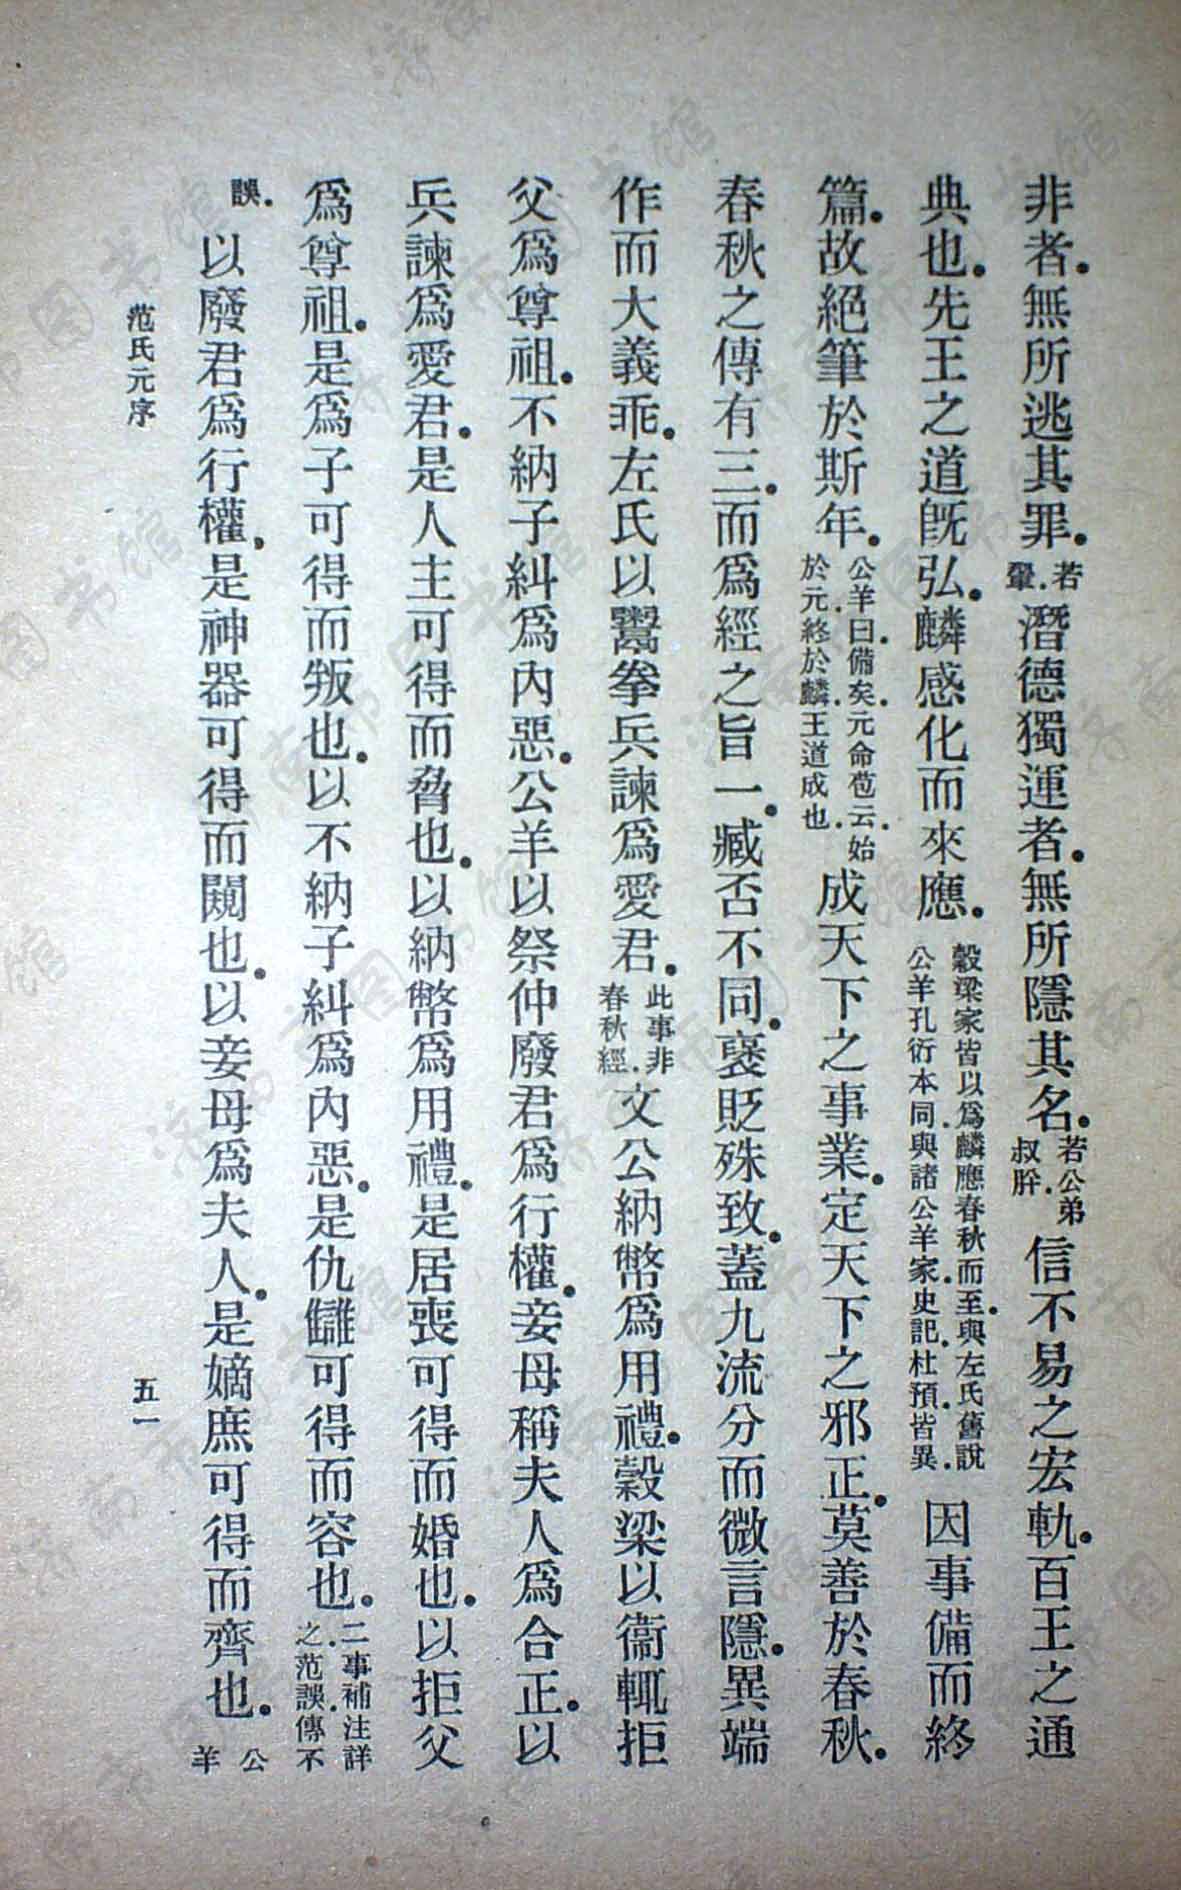 非者.無所逃其罪.若翬.潛德獨運者.無所隱其名.若公弟叔肸.信不易之宏軌.百王之通
典也.先王之道既弘.麟感化而來應.穀梁家皆以爲麟應春秋而至.與左氏舊說公羊孔衍本同.與諸公羊家.史記.杜預.皆異.因事備而終
篇.故絕筆於斯年.公羊曰.備矣.元命苞云.始於元.終於麟.王道成也.成天下之事業.定天下之邪正.莫善於春秋.
春秋之傳有三.而爲經之旨一.臧否不同.褒貶殊致.蓋九流分而微言隱.異端
作而大義乖.左氏以鬻拳兵諫爲愛君.此事非春秋經.文公納幣爲用禮.穀梁以衞輒拒
父爲尊祖.不納子糾爲內惡.公羊以祭仲廢君爲行權.妾母稱夫人爲合正.以
兵諫爲愛君.是人主可得而脅也.以納幣爲用禮.是居喪可得而婚也.以拒父
爲尊祖.是爲子可得而叛也.以不納子糾爲內惡.是仇讎可得而容也.二事補注詳之.范誤.傳不
誤.以廢君爲行權.是神器可得而闚也.以妾母爲夫人.是嫡庶可得而齊也.公羊
范氏元序
五一
济南市图书馆